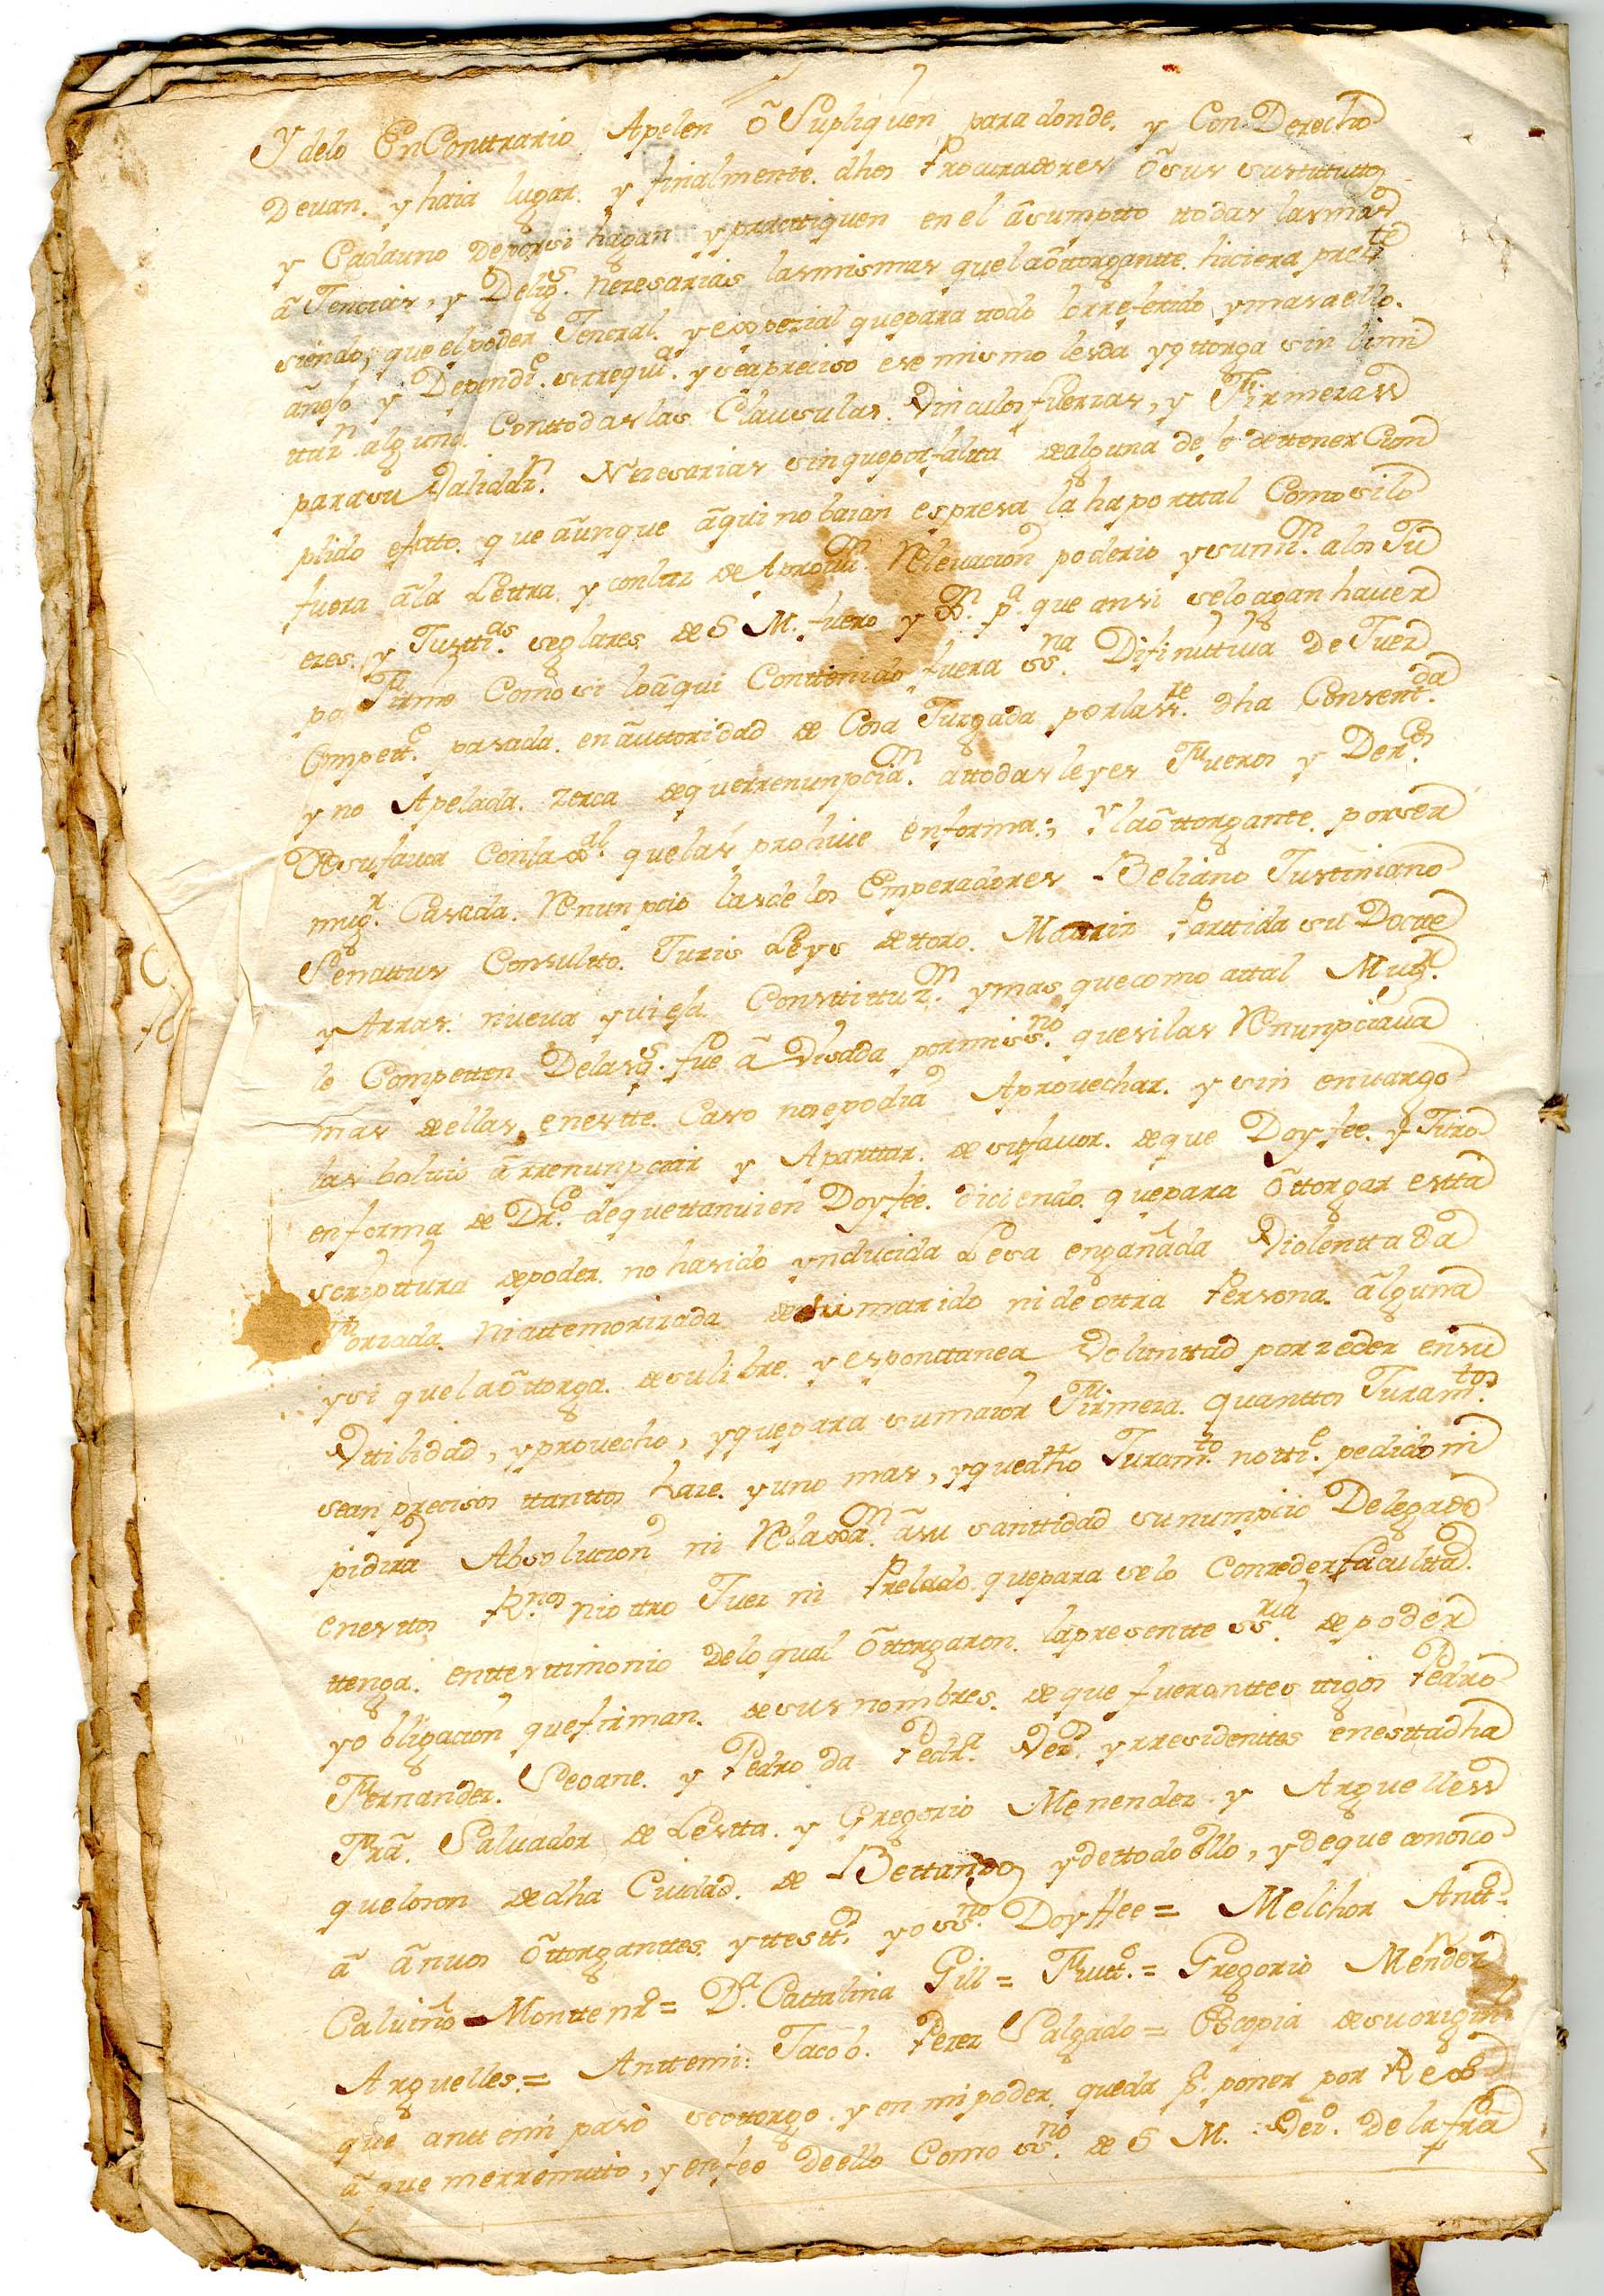 Y delo En Conttrario Apelen õ Supliquen para donde. y Con Derecho
Deuan. y haia lugar. y finalmente. dhos Procuradores õ sus sustituttos
y Cadauno deporsi hagan y practtiquen en el ãsumptto ttodas las mas
ã Jencias, y Delig.s Nezesarias las mismas que la õttorgantte. hiciera pres.te
siendo, que el poder Jeneral. y espezial que para ttodo lo rreferido y mas a ello.
anejo y Dependi.e serrequi.a y sea preciso ese mismo les da y ottorga sin limi
ttaz.n alguna. Con ttodas las Clausulas. Vinculos fuerzas, y Firmezas
para su Validaz.n Nezesarias sin que por faltta de alguna deje de ttener Cum
plido efetto. que aũnque ãqui no baian espresa la ha por ttal Como si lo
fuera ã la Lettra y con la de Aprouaz.n Releuacion poderio y sumis.n a los Ju
ezes. y Justti.as seglares de S M. fuero y p.a que ansi se lo agan hauer
po Firme Como si lo ãqui Conttenido fuera ss.na Difinittiua De Juez
Compett.e pasada. en ãuttoridad de Cosa Juzgada por la p.te dha Consent.da
y no Apelada. Zerca de que rrenunpcia.n a ttodas leyes Fueros y Der.os
De su fauor Con la gl. que las prohiue en forma; Y la õttorgante. por ser
mug.r Casada. Renunpcio las de los Emperadores Beliano Justiniano
Senattus Consultto. Juris Leys de ttoro. Madrid Parttida su Docte
y Arras. nueua y uieja Consttittuz.n y mas que como a ttal Mug.r
le Competten De las q.s fue ã Visada por mi ss.no que si las Renunpciaua
mas de ellas en estte. Caso nose podia Aprouechar. y sin enuargo
las boluio ã rrenunpciar y Aparttar. de su fauor. de que Doy fee. y Juro
en forma de Dr.o de que ttanuien Doy fee. diciendo. que para õttorgar estta
scripttura de poder. no ha sido ynducida Lesa engañada Violenttada
Forzada. Ni attemorizada de su marido ni de ottra Persona. ãlguna
y si que la õttorga. de su libre. y esponttanea Voluntad por zeder en su
Vttilidad, y prouecho, y que para su maior Firmeza. quanttos Juram.tos
sean precisos ttanttos haze. y uno mas, y que dho Juram.to no tti.e pedido ni
pidira Absolucion ni Relaxa.n ã su santtidad su numpcio Delegado
en esttos R.nos ni ottro Juez ni Prelado que para se lo Conzeder facultad.
ttenga. en ttesttimonio de lo qual õttorgaron. la presentte ss.ria de poder
y obligacion que firman. de sus nombres. de que fueron ttesttigos Pedro
Fernandez. Seoane. y Pedro da Pedr.a Vez.s y rresidenttes en estta dha
Frã. Saluador de Lestta. y Gregorio Menendez y Arguelles
que lo son de dha Ciudad. de Bettanzos y de ttodo ello, y de que conozco
ã ãnuos õttorganttes. y ttestt.s yo ss.no Doy ffee = Melchor Antt.o
Caluiño Monttenr.o = D.a Cattalina Gill = Fuitt.o = Gregorio Mendez
Arguelles. = Antte mi: Jacob. Perez Salgado = Es copia de su orixin.l
que antte mi pasò se ottorgo. y en mi poder queda p.a poner por Rex.o
ã que me rremitto, y en fee de ello Como ss.no de S M. Vez.o de la frã